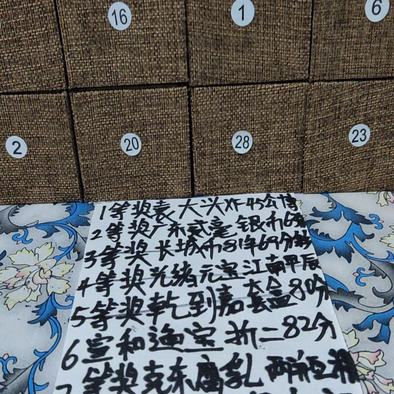 16 1 6
2 20 28 23
1等奖袁大头XF45公博
2等奖广东贰毫银币6
3等奖长城币81年69分
4等奖光绪元宝江南甲辰
5等奖乾到嘉套盒80分
6宣和通宝折二82分
等奖克东腐乳两